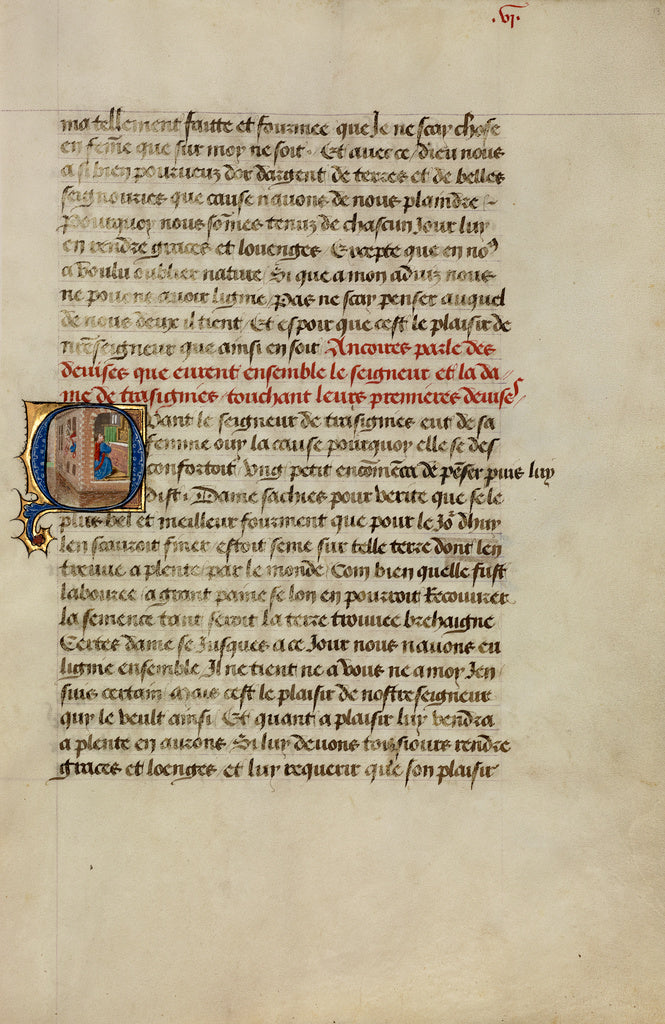 .vj.
ma tellement faitte et fourmee que Je ne scay chose
en fem̃e que sur moy ne soit . Et avec ce / dieu nous
a si bien pourveuz dor dargent de terres et de belles
seignouries que cause navons de nous plaindre /
Pourquoy nous som̃es tenuz de chascun Jour luy
en rendre graces et louenges / Excepte que en no9
a voulu oublier nature / Si que a mon adviz nous
ne povons avoir ligme / Pas ne scay penser auquel
de nous deux il tient / Et espoir que cest le plaisir de
nr̃eseigneur que ainsi en soit / Ancoires parle des
devises que eurent ensemble le seigneur et la da /
me de trasignies / touchant leurs premieres devises
Quant le seigneur de trasignies eut de sa
femme ouy la cause pourquoy elle se des
confortoit / Ung petit encom̃enca de pẽser puis luy
dist . Dame sachies pour verite que se le
plus bel et meilleur fourment que pour le Jo᷒ dhuy
len scauroit finer estoit seme sur telle terre dont len
treuve a plente par le monde / Com bien quelle fust
labouree / a grant paine se lon en pourroit Recouvrer
la semence tant seroit la terre trouvee brehaigne
Certes dame se Jusques a ce Jour nous navons eu
ligme ensemble / Il ne tient ne a vous ne a moy Jen
suis certain / Mais cest le plaisir de nostreseigneur
quy le veult ainsi / Et quant a plaisir luy vendra
a plente en aurons / Si luy devons tousiours rendre
graces et loenges / et luy requerir que son plaisir